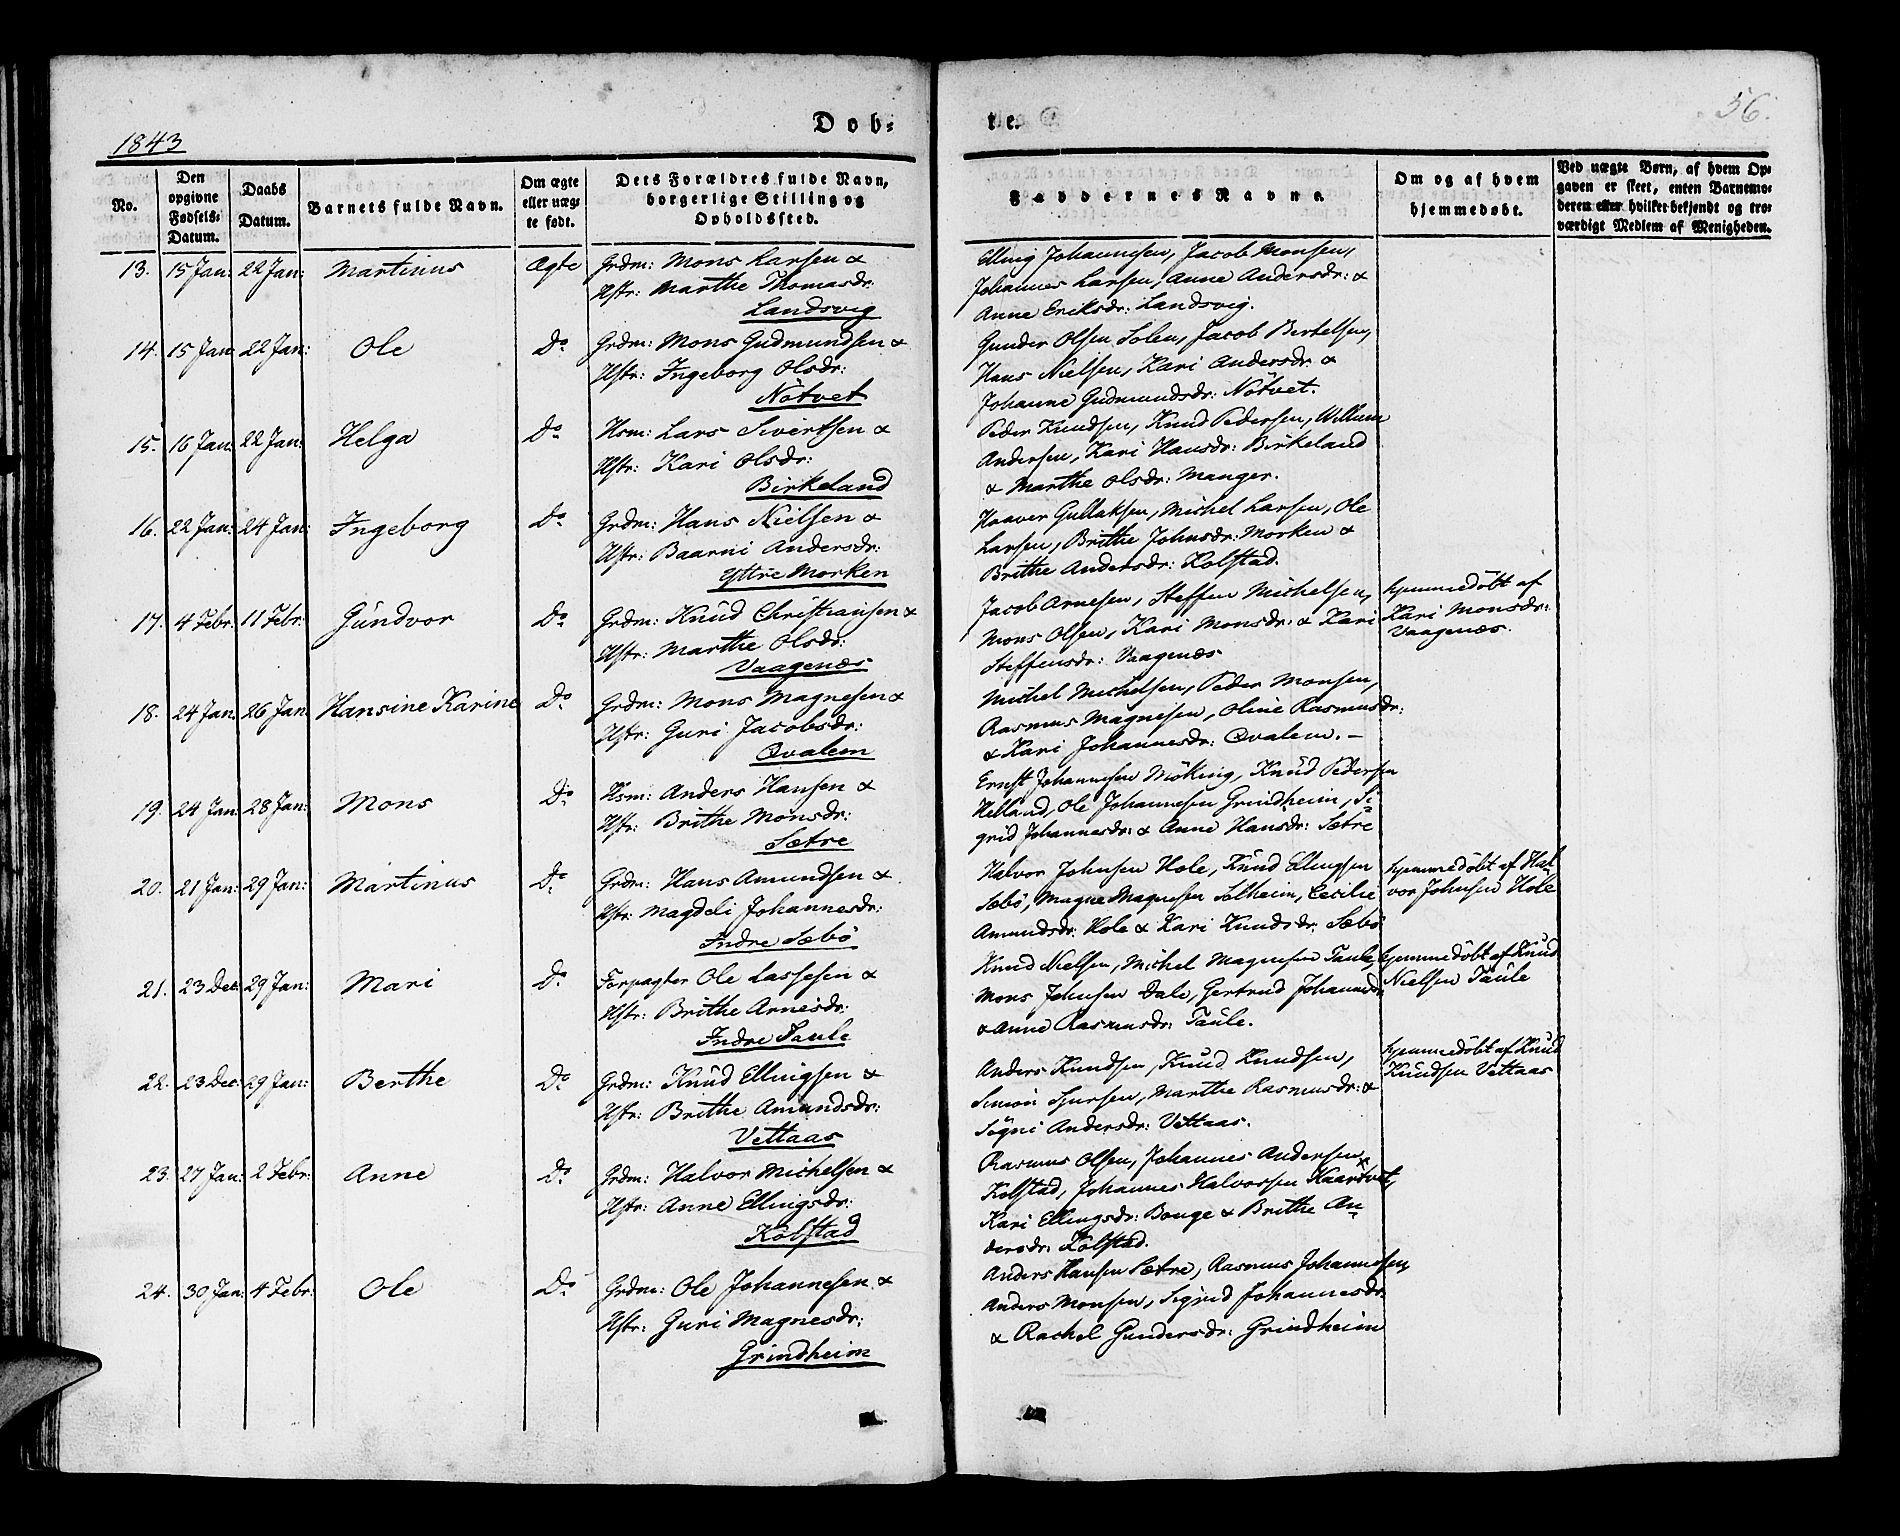 1843
Døb-
te.
56.
No.
Den opgivne Fødsels-Datum.
Daabs Datum.
Barnets fulde Navn.
Om ægte eller uægte født.
Dets Forældres fulde Navn, borgerlige Stilling og Opholdssted.
Faddernes Navne.
Om og af hvem hjemmedøbt.
Ved uægte Børn, af hvem Opgaven er skeet, enten Barnemoderen eller hvilket bekjendt og troværdigt Medlem af Menigheden.
13. 15 Jan: 22 Jan: Martinus Ægte Grdm: Mons Larsen &
Hstr: Marthe Thomasdr:
Landsvig
Elling Johannesen, Jacob Monsen,
Johannes Larsen, Anne Andersdr: &
Anne Eriksdr: Landsvig.
14. 15 Jan: 22 Jan: Ole Do Grdm: Mons Gudmundsen &
Hstr: Ingeborg Olsdr:
Nötvet
Gunder Olsen Solem, Jacob Bertelsen,
Hans Nielsen, Kari Andersdr: &
Johanne Gudmundsdr: Nötvet.
15. 16 Jan: 22 Jan: Helga Do Hsm: Lars Sivertsen &
Hstr: Kari Olsdr:
Birkeland
Peder Knudsen, Knud Pedersen, Willum
Andersen, Kari Hansdr: Birkeland
& Marthe Olsdr: Manger.
16. 22 Jan: 24 Jan: Ingeborg Do Grdm: Hans Nielsen &
Hstr: Baarni Andersdr:
Yttre Morken
Haaver Gullaksen, Michel Larsen, Ole
Larsen, Brithe Johnsdr: Morken &
Brithe Andersdr: Kolstad.
17. 4 Febr: 11 Febr: Gündvor Do Grdm: Knud Christiansen &
Hstr: Marthe Olsdr:
Vaagenæs
Jacob Arnesen, Steffen Michelsen,
Mons Olsen, Kari Monsdr: & Kari
Steffensdr: Vaagenæs
hjemmedöbt af
Kari Monsdr:
Vaagenæs.
18. 24 Jan: 26 Jan: Hansine Karine Do Grdm: Mons Magnesen &
Hstr: Guri Jacobsdr:
Qvalem
Michel Michelsen, Peder Monsen,
Rasmus Magnesen, Oline Rasmusdr:
& Kari Johannesdr: Qvalem. –
19. 24 Jan: 28 Jan: Mons Do Hsm: Anders Hansen &
Hstr: Brithe Monsdr:
Sætre
Ernst Johannesen Möking, Knud Pedersen
Helland, Ole Johannesen Grindheim, Si-
grid Johannesdr: & Anne Hansdr: Sætre
20. 21 Jan: 29 Jan: Martinus Do Grdm: Hans Amundsen &
Hstr: Magdeli Johannesdr:
Indre Sæbö
Halvor Johnsen Hole, Knud Ellingsen
Sæbö, Magne Magnesen Solheim, Cecilie
Amundsdr: Hole & Kari Knudsdr: Sæbö
hjemmedöbt af Hal-
vor Johnsen Hole
21. 23 Dec: 29 Jan: Mari Do Forpagter Ole Lassesen &
Hstr: Brithe Arnesdr:
Indre Taule
Knud Nielsen, Michel Magnesen Taule,
Mons Johnsen Dale, Gertrud Johannesdr:
& Anne Rasmusdr: Taule.
hjemmedöbt af Knud
Nielsen Taule
22. 23 Dec: 29 Jan: Berthe Do Grdm: Knud Ellingsen &
Hstr: Brithe Amundsdr:
Vettaas
Anders Knudsen, Knud Knudsen,
Simon Sjursen, Marthe Rasmusdr: &
Sögni Andersdr: Vettaas.
hjemmedöbt af Knud
Knudsen Vettaas
23. 27 Jan: 2 Febr: Anne Do Grdm: Halvor Michelsen &
Hstr: Anne Ellingsdr:
Kolstad
Rasmus Olsen, Johannes Andersen
Kolstad, Johannes Halvorsen Haardvet,
Kari Ellingsdr: Bouge & Brithe An-
dersdr: Kolstad.
24. 30 Jan: 4 Febr: Ole Do Grdm: Ole Johannesen &
Hstr: Guri Magnesdr:
Grindheim
Anders Hansen Sætre, Rasmus Johannesen,
Anders Monsen, Sigrid Johannesdr:
& Rachel Gundersdr: Grindheim